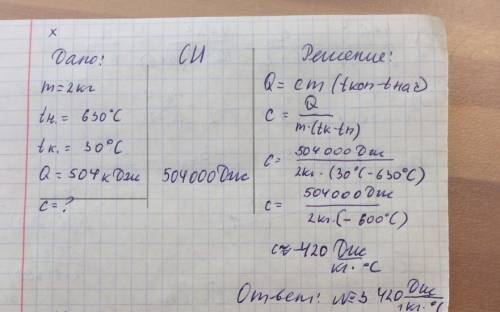 x
Дано:
m=2кг
tн. = 630°C
tк. = 30°C
Q = 504кДж
c = ?
СИ
504000Дж
Решение:
Q = cm(tкон-tнач)
c = Q/m·(tк-tн)
c = 504000Дж/2кг·(30°C-630°C)
c = 504000Дж/2кг·(-600°C)
c≈-420 Дж/кг·°C
Ответ: №3 420 Дж/кг·°C